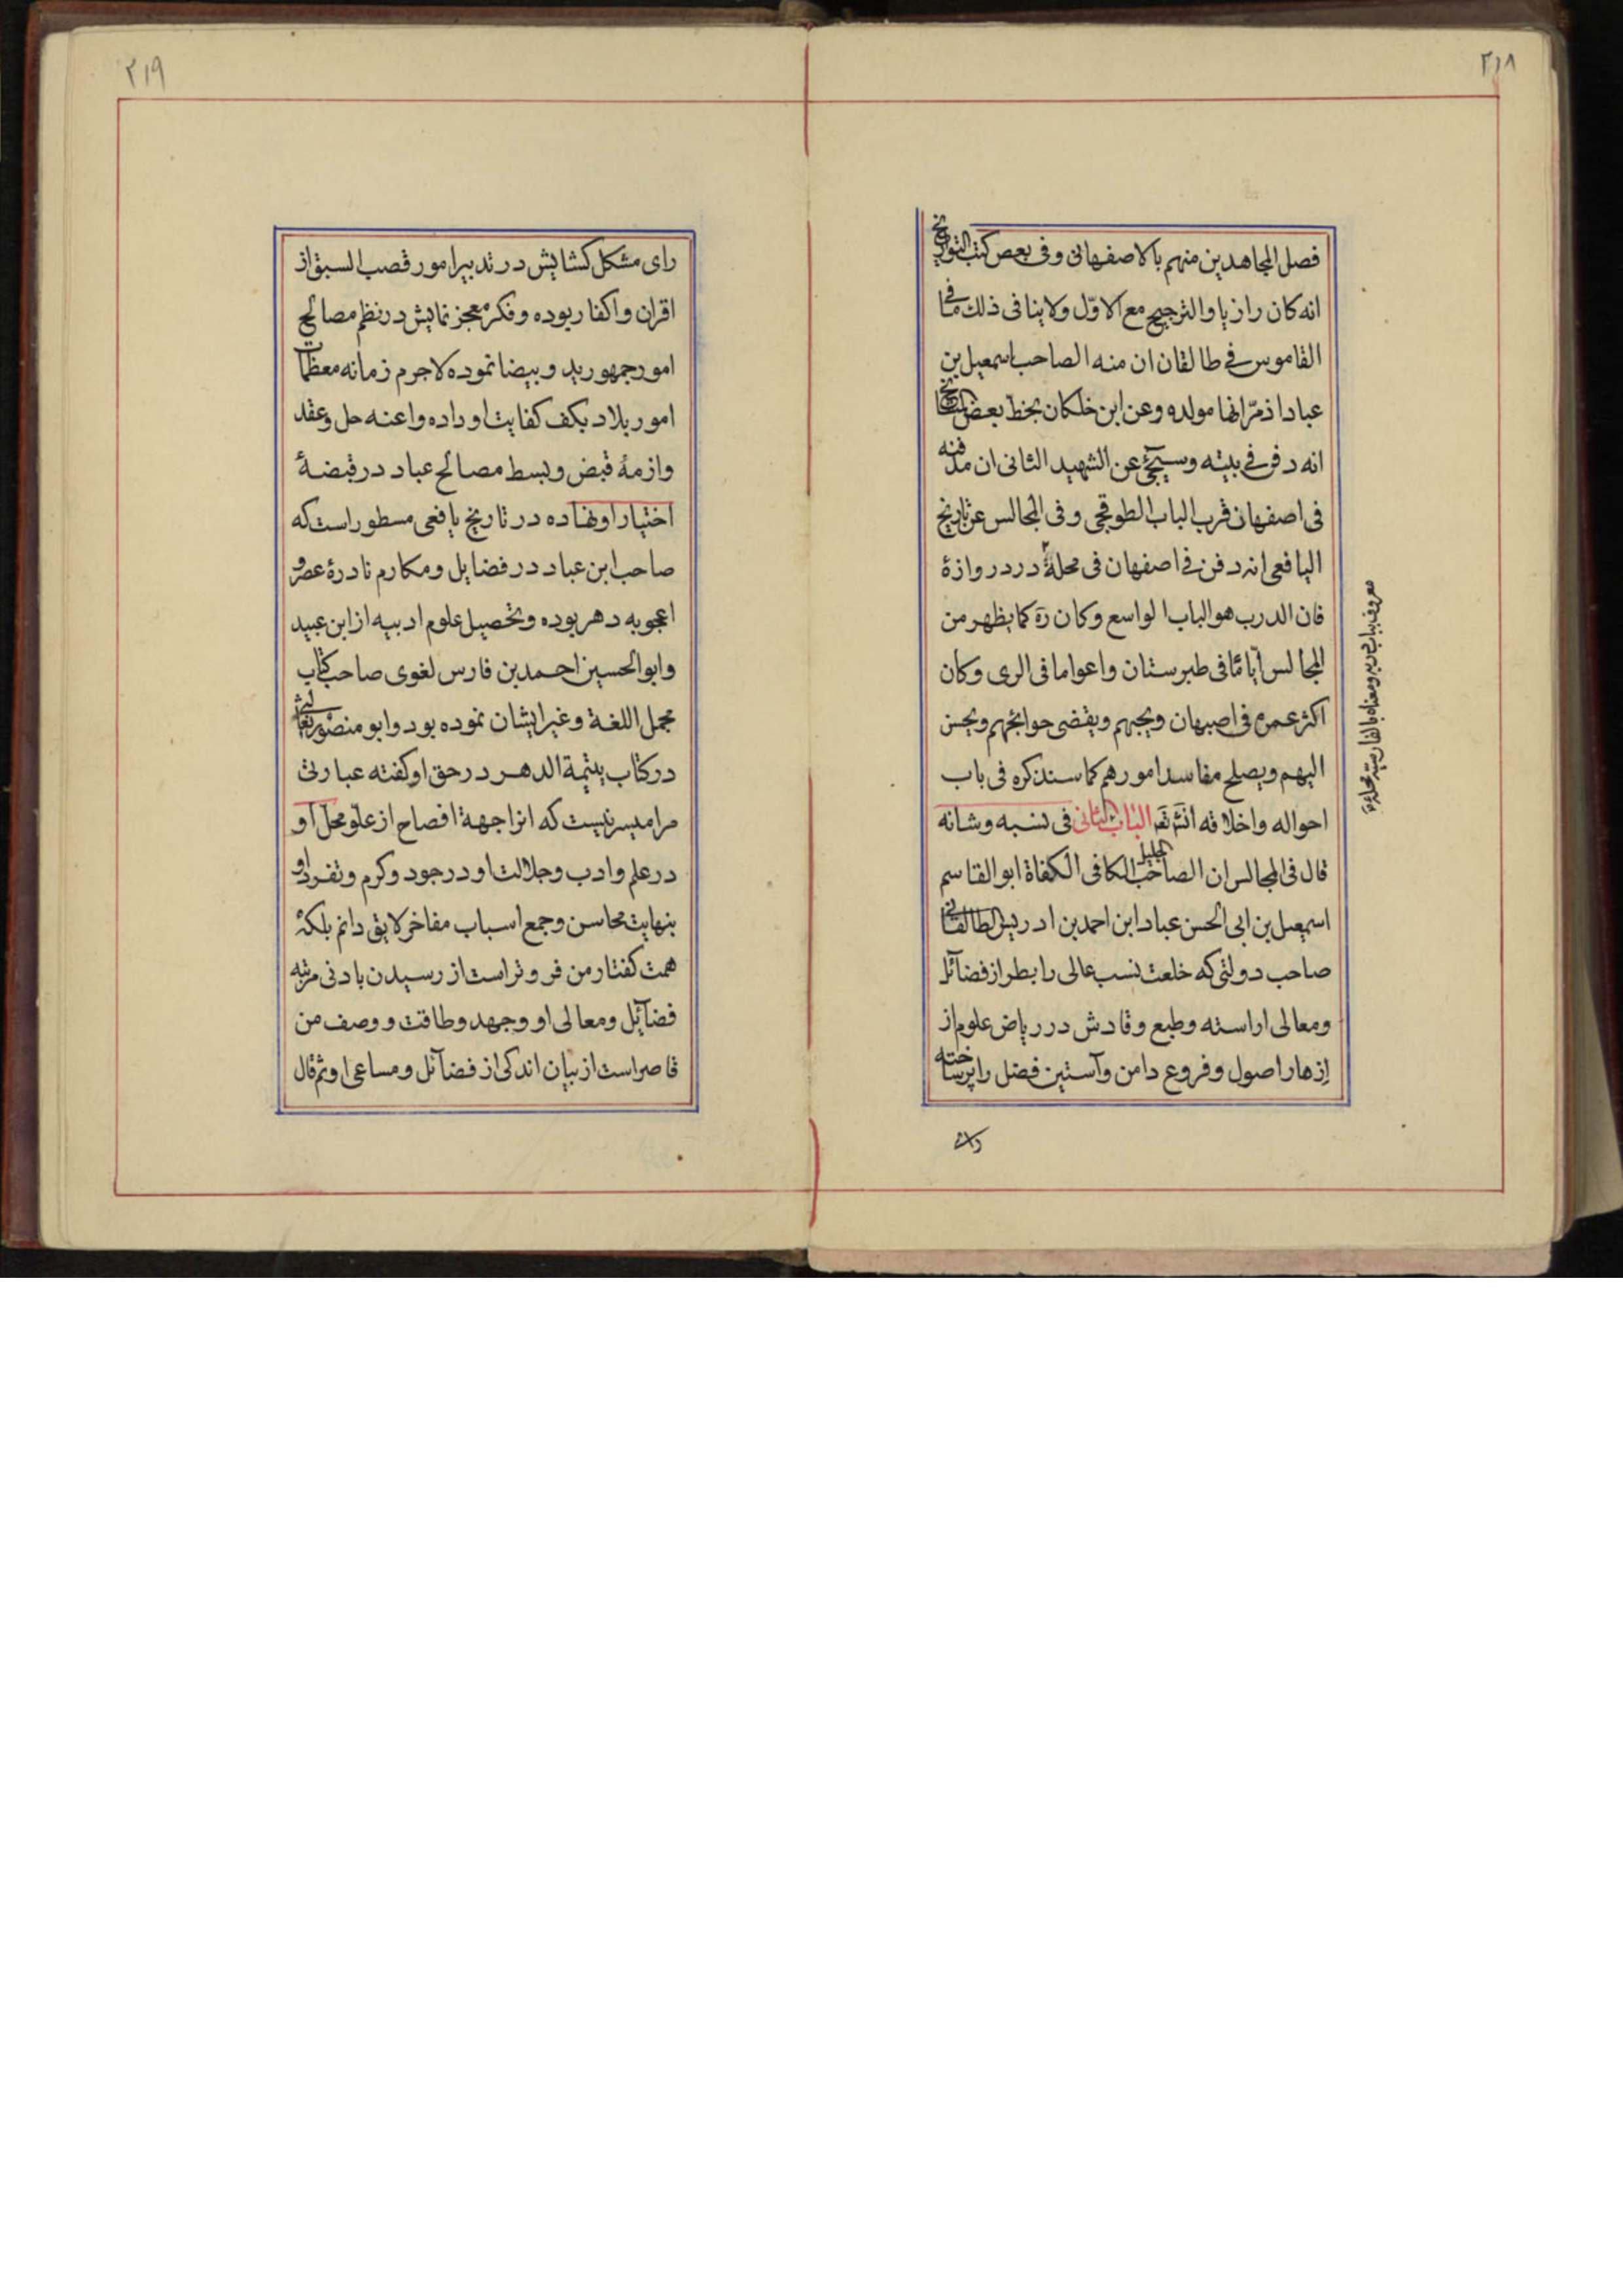 ٢١٨
فصل المجاهدين منهم بالاصفهانی وفی بعض كتب التواريخ
انه كان رازيا والترجيح مع الاوّل ولاينافی ذلك ما فی
القاموس فی طالقان ان منه الصاحب اسمعيل بن
عباد اذ مرّ انها مولده وعن ابن خلكان بخط بعض المشايخ
انه دفن فی بيته وسيجیٔ عن الشهيد الثانی ان مدفنه
فی اصفهان قرب الباب الطوقچی وفی المجالس عن تاريخ
اليافعی انه دفن فی اصفهان فی محلة در دروازهٔ
فان الدرب هو الباب الواسع وكان ره كما يظهر من
المجالس ايّامًا فی طبرستان واعواما فی الری وكان
اكثر عمره فی اصبهان ويحبهم ويقضی حوائجهم ويحسن
اليهم ويصلح مفاسد امورهم كما سنذكره فی باب
احواله واخلاقه انش تعه الباب الثانی فی نسبه وشانه
قال فی المجالس ان الصاحب الجليل الكافی الكفاة ابو القاسم
اسمعيل بن ابی الحسن عباد ابن احمد بن ادريس الطالقانی
صاحب دولتی كه خلعت نسب عالی را بطراز فضآئل
ومعالی اراسته وطبع وقادش در رياض علوم از
ازهار اصول وفروع دامن وآستين فضل را پر ساخته
معروف بباب دريه ومعناه بالفارسية محلهٔ
رای
٢١٩
رای مشكل كشايش در تدبير امور قصب السبق از
اقران واكفا ربوده وفكر معجز نمايش در نظم مصالح
امور جمهور يد وبيضا نموده لاجرم زمانه معظمات
امور بلاد بكف كفايت او داده واعنه حل وعقد
وازمهٔ قبض وبسط مصالح عباد در قبضهٔ
اختيار او نهاده در تاريخ يافعی مسطور است كه
صاحب ابن عباد در فضايل ومكارم نادرهٔ عصر و
اعجوبه دهر بوده وتحصيل علوم ادبيه از ابن عميد
وابو الحسين احمد بن فارس لغوی صاحب كتاب
مجمل اللغة وغير ايشان نموده بود وابو منصور ثعالبی
در كتاب يتيمة الدهر در حق او كفته عبارتی
مرا ميسر نيست كه انرا جهة افصاح از علو محل او
در علم وادب وجلالت او در جود وكرم وتفرد او
بنهايت محاسن وجمع اسباب مفاخر لايق دانم بلكه
همت كفتار من فروتر است از رسيدن بادنی مرتبه
فضآئل ومعالی او وجهد وطاقت و وصف من
قاصر است از بيان اندكی از فضآئل ومساعی او ثم قال